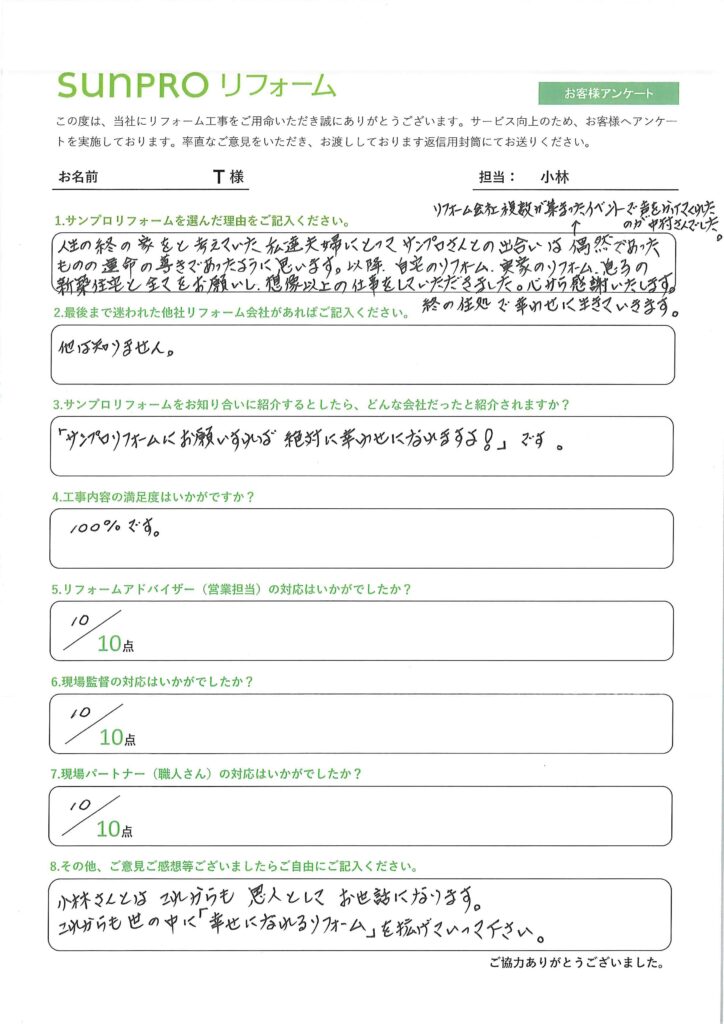 sunPRO リフォーム
お客様アンケート
この度は、当社にリフォーム工事をご用命いただき誠にありがとうございます。サービス向上のため、お客様へアンケー
トを実施しております。率直なご意見をいただき、お渡ししております返信用封筒にてお送りください。
お名前 T 様 担当： 小林
リフォーム会社複数が集まったイベントで声をかけてくれた
のが中村さんでした。
1.サンプロリフォームを選んだ理由をご記入ください。
人生の終の家をと考えていた私達夫婦にとってサンプロさんとの出合いは偶然であった
ものの運命の導きであったように思います。以降、自宅のリフォーム、実家のリフォーム、息子の
新築住宅と全てをお願いし、想像以上の仕事をしていただきました。心から感謝いたします。
終の住処で幸わせに生きていきます。
2.最後まで迷われた他社リフォーム会社があればご記入ください。
他は知りません。
3.サンプロリフォームをお知り合いに紹介するとしたら、どんな会社だったと紹介されますか？
「サンプロリフォームにお願いすれば 絶対に幸わせになれますよ！」です。
4.工事内容の満足度はいかがですか？
100%です。
5.リフォームアドバイザー（営業担当）の対応はいかがでしたか？
10
10点
6.現場監督の対応はいかがでしたか？
10
10点
7.現場パートナー（職人さん）の対応はいかがでしたか？
10
10点
8.その他、ご意見ご感想等ございましたらご自由にご記入ください。
小林さんとは これからも 恩人として お世話になります。
これからも世の中に「幸せになれるリフォーム」を拡げていって下さい。
ご協力ありがとうございました。